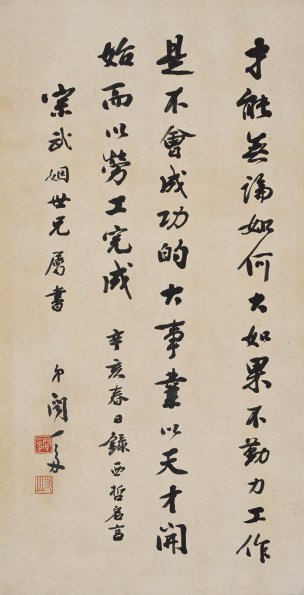 才能無論如何大如果不勤力工作
是不會成功的大事業以天才開
始而以勞工完成
辛亥春日錄西哲名言
宗武姻世兄屬書
弟閻